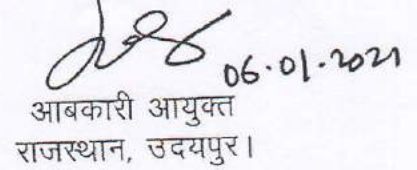 06.01.2021
आबकारी आयुक्त
राजस्थान, उदयपुर।